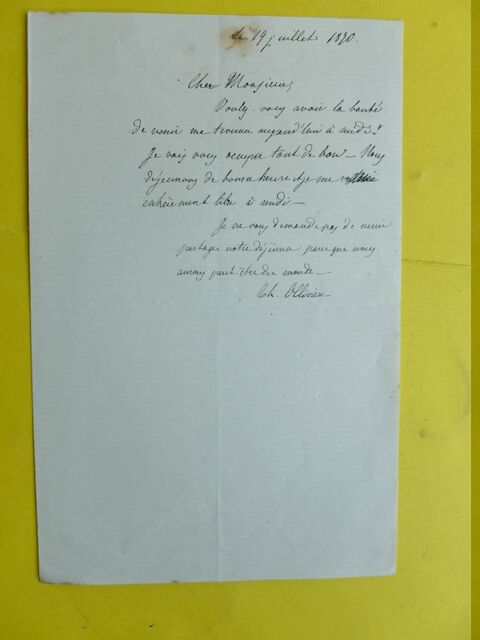 le 19 juillet 1870.
Cher Monsieur,
Voulez-vous avoir la bonté
de venir me trouver aujourd'hui à midi?
Je vais vous occuper tout de bon - Nous
déjeunons de bonne heure et je me
entièrement libre à midi -
Je ne vous demande pas de venir
partager notre déjeuner parce que nous
aurons peut-être du monde -
Ch. Ollivier